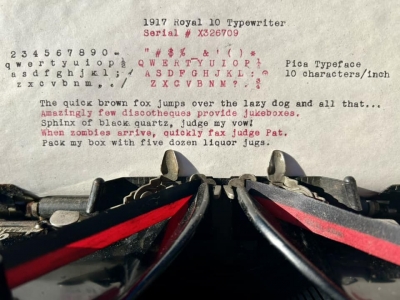 1917 Royal 10 Typewriter
Serial # X326709
2 3 4 5 6 7 8 9 0 - " # $ % _ & ' ( ) *
q w e r t y u i o p ½ Q W E R T Y U I O P ¼
a s d f g h j k l ; A S D F G H J K L :
z x c v b n m , . / Z X C V B N M ? .
Pica Typeface
10 characters/inch
The quick brown fox jumps over the lazy dog and all that...
Amazingly few discotheques provide jukeboxes.
Sphinx of black quartz, judge my vow!
When zombies arrive, quickly fax judge Pat.
Pack my box with five dozen liquor jugs.